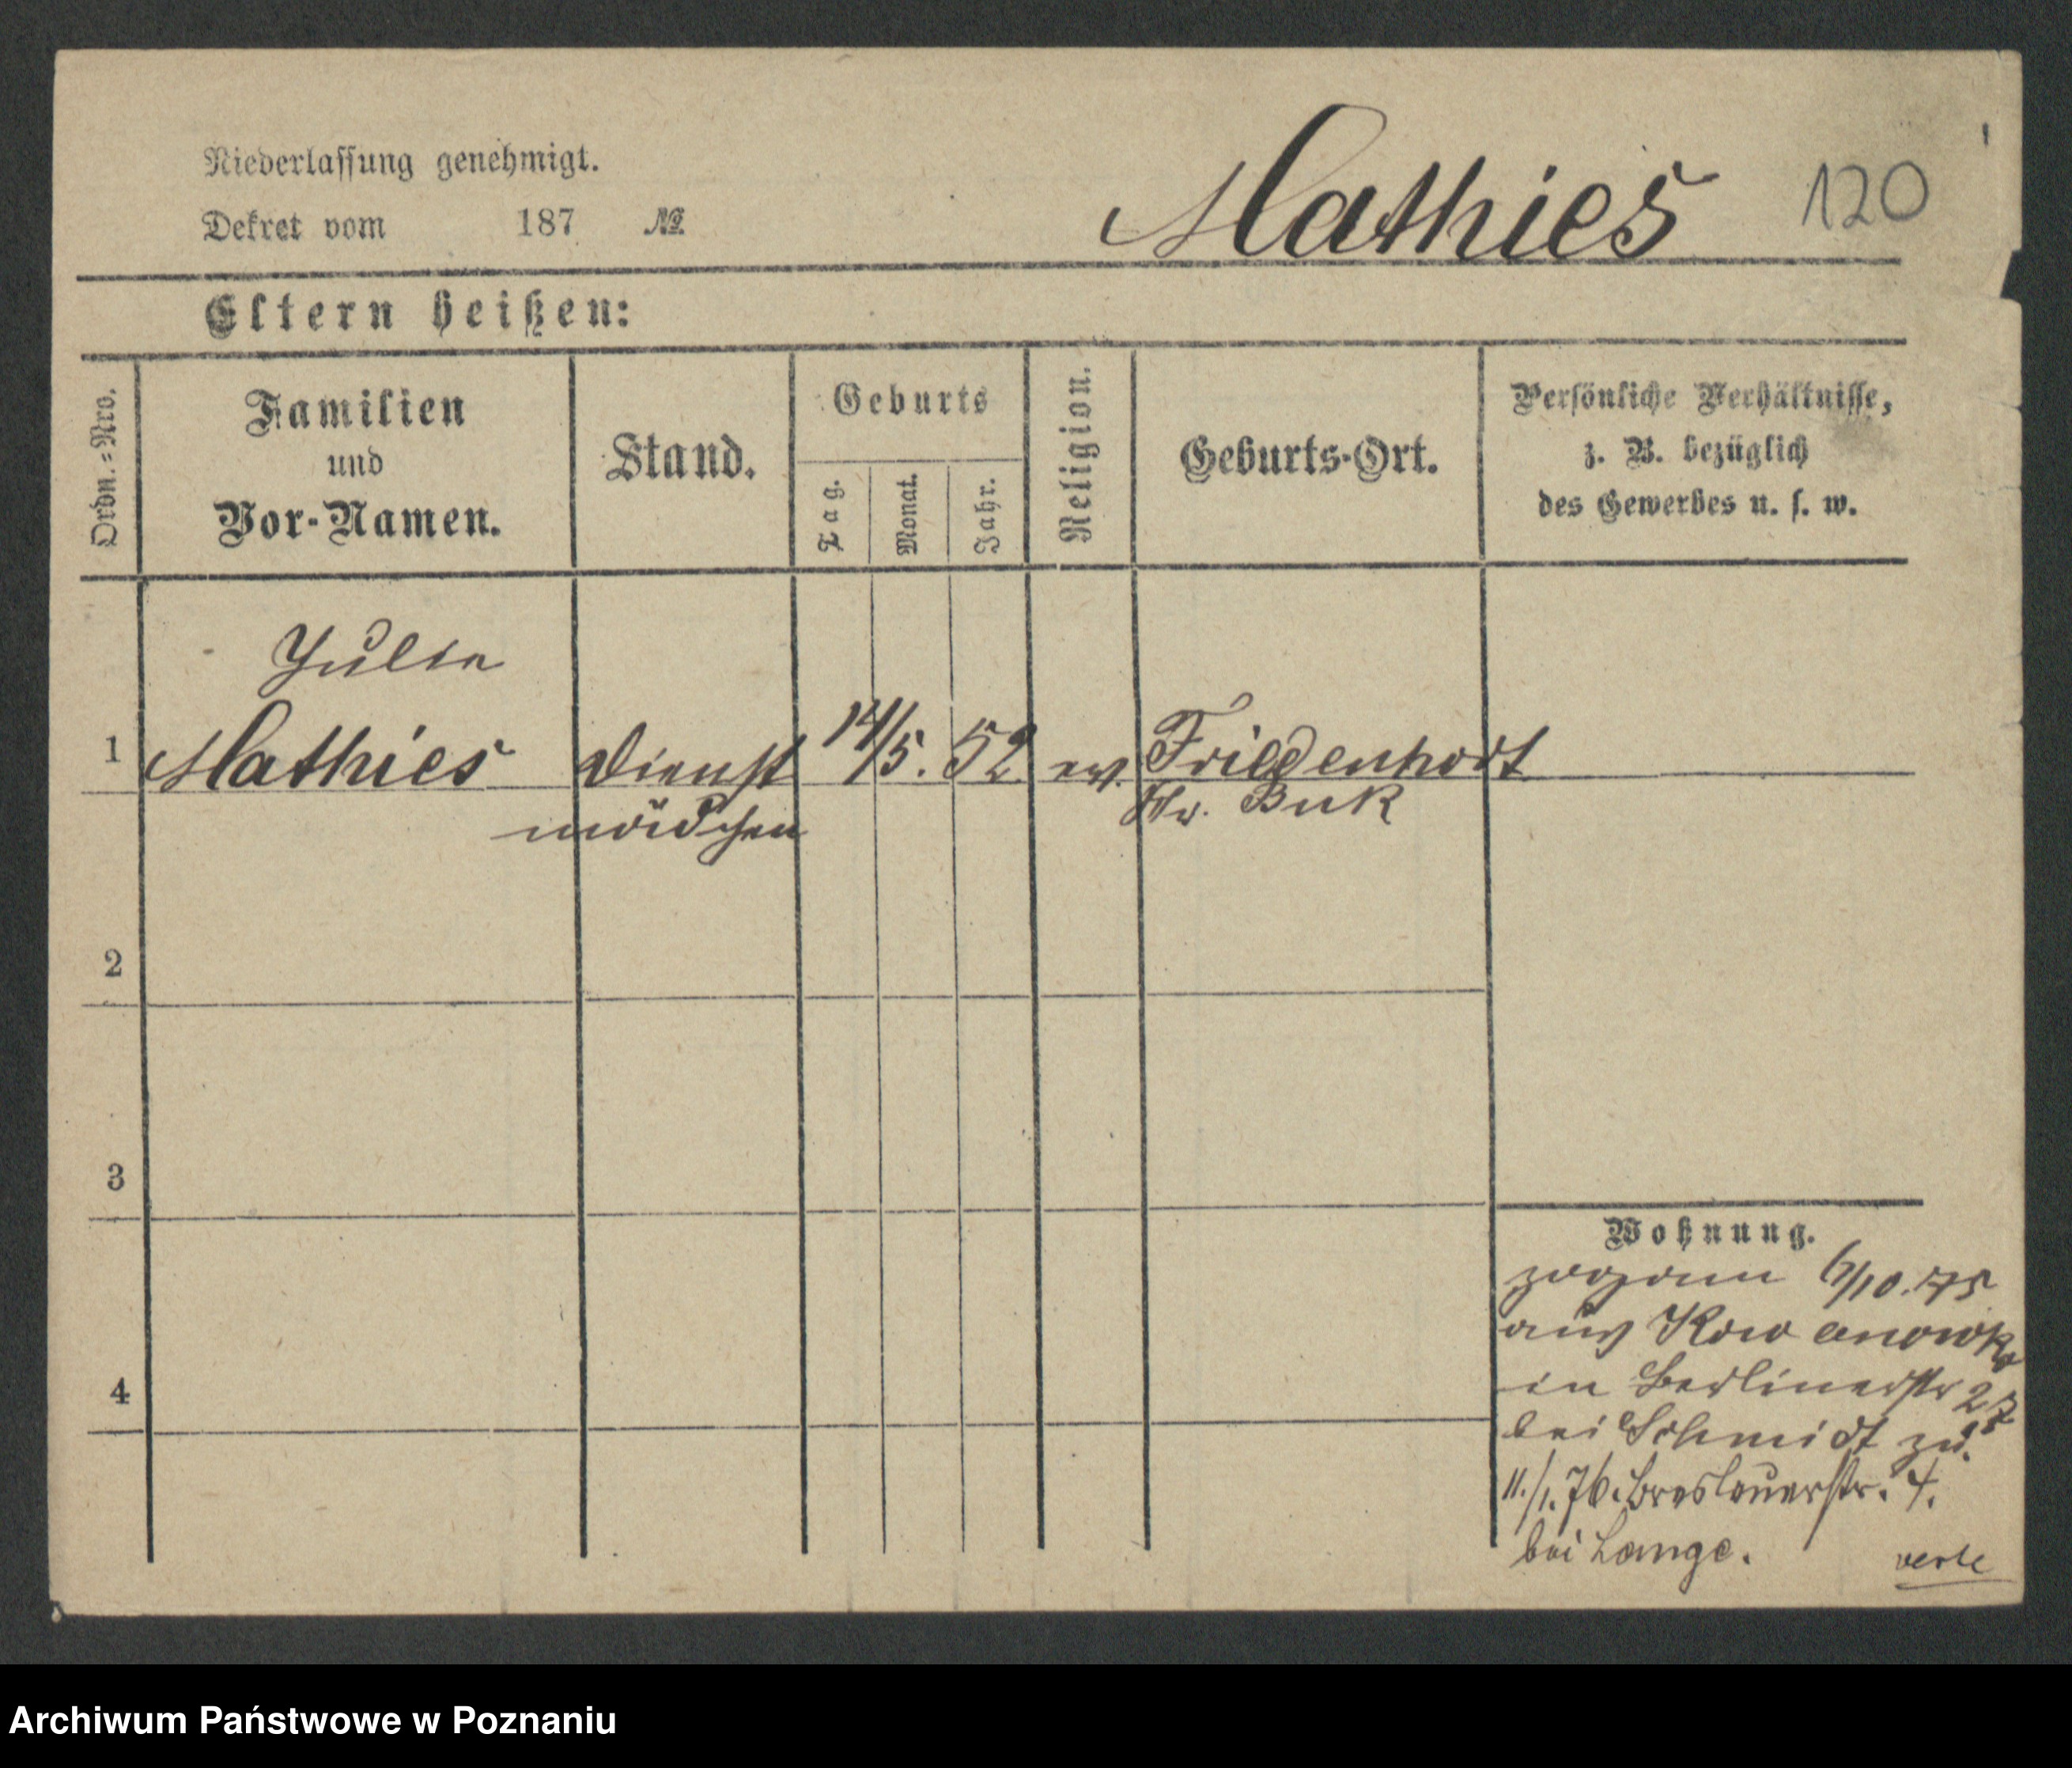 Niederlassung genehmigt.
Dekret vom 187 №
Mathies 120
Eltern heißen:
Ordn.=Nro.
Familien
und
Vor-Namen.
Stand.
Geburts
Tag.
Monat.
Jahr.
Religion.
Geburts-Ort.
Persönliche Verhältnisse,
z. B. bezüglich
des Gewerbes u. s. w.
Julie
1 Mathies Dienst 14/5. 52 ev. Friedenhorst
mädchen Kr. Buk
2
3
4
Wohnung.
zogen 6/10.75
aus Kowanowko
in Berlinerstr 27
bei Schmidt zu.
11./1. 76. Breslauerstr. 4.
bei Lange. verte
Archiwum Państwowe w Poznaniu